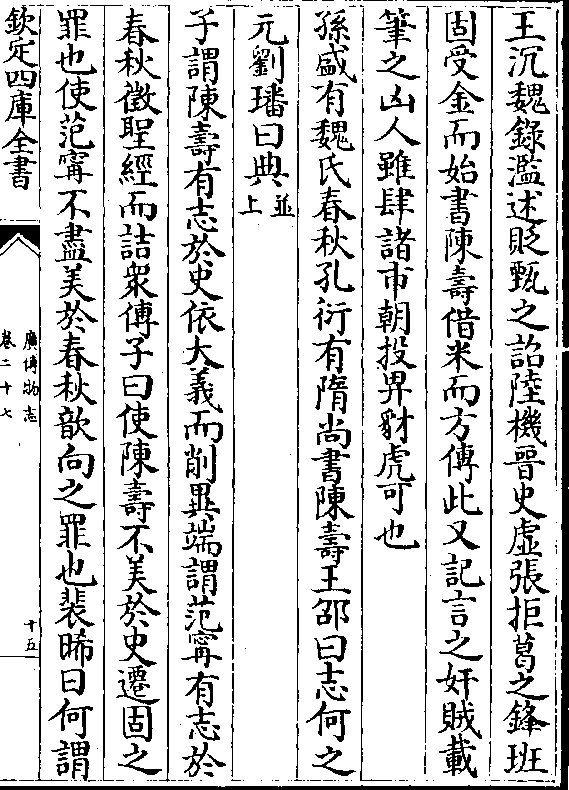 王沉魏錄濫述貶甄之詔陸機晉史虛張拒葛之鋒班
固受金而始書陳壽借米而方傳此又記言之奸賊載
筆之凶人雖肆諸市朝投畀豺虎可也
孫盛有魏氏春秋孔衍有隋尚書陳壽王邵曰志何之
元劉璠曰典並上
子謂陳壽有志於史依大義而削異端謂范甯有志於
春秋徵聖經而詰衆傳子曰使陳壽不美於史遷固之
罪也使范甯不盡美於春秋歆向之罪也裴晞曰何謂
欽定四庫全書
廣博物志
卷二十七
十五